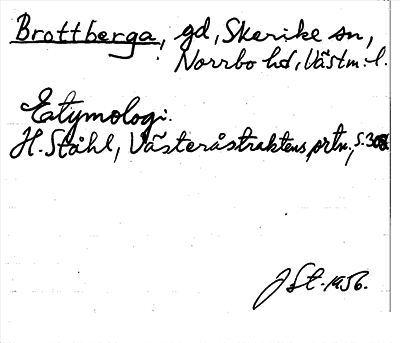 Brottberga, gd, Skerike sn,
Norrbo hd, Västm. l.
Etymologi:
H. Ståhl, Västeråstraktens ortn., s.
JSt. 1956.